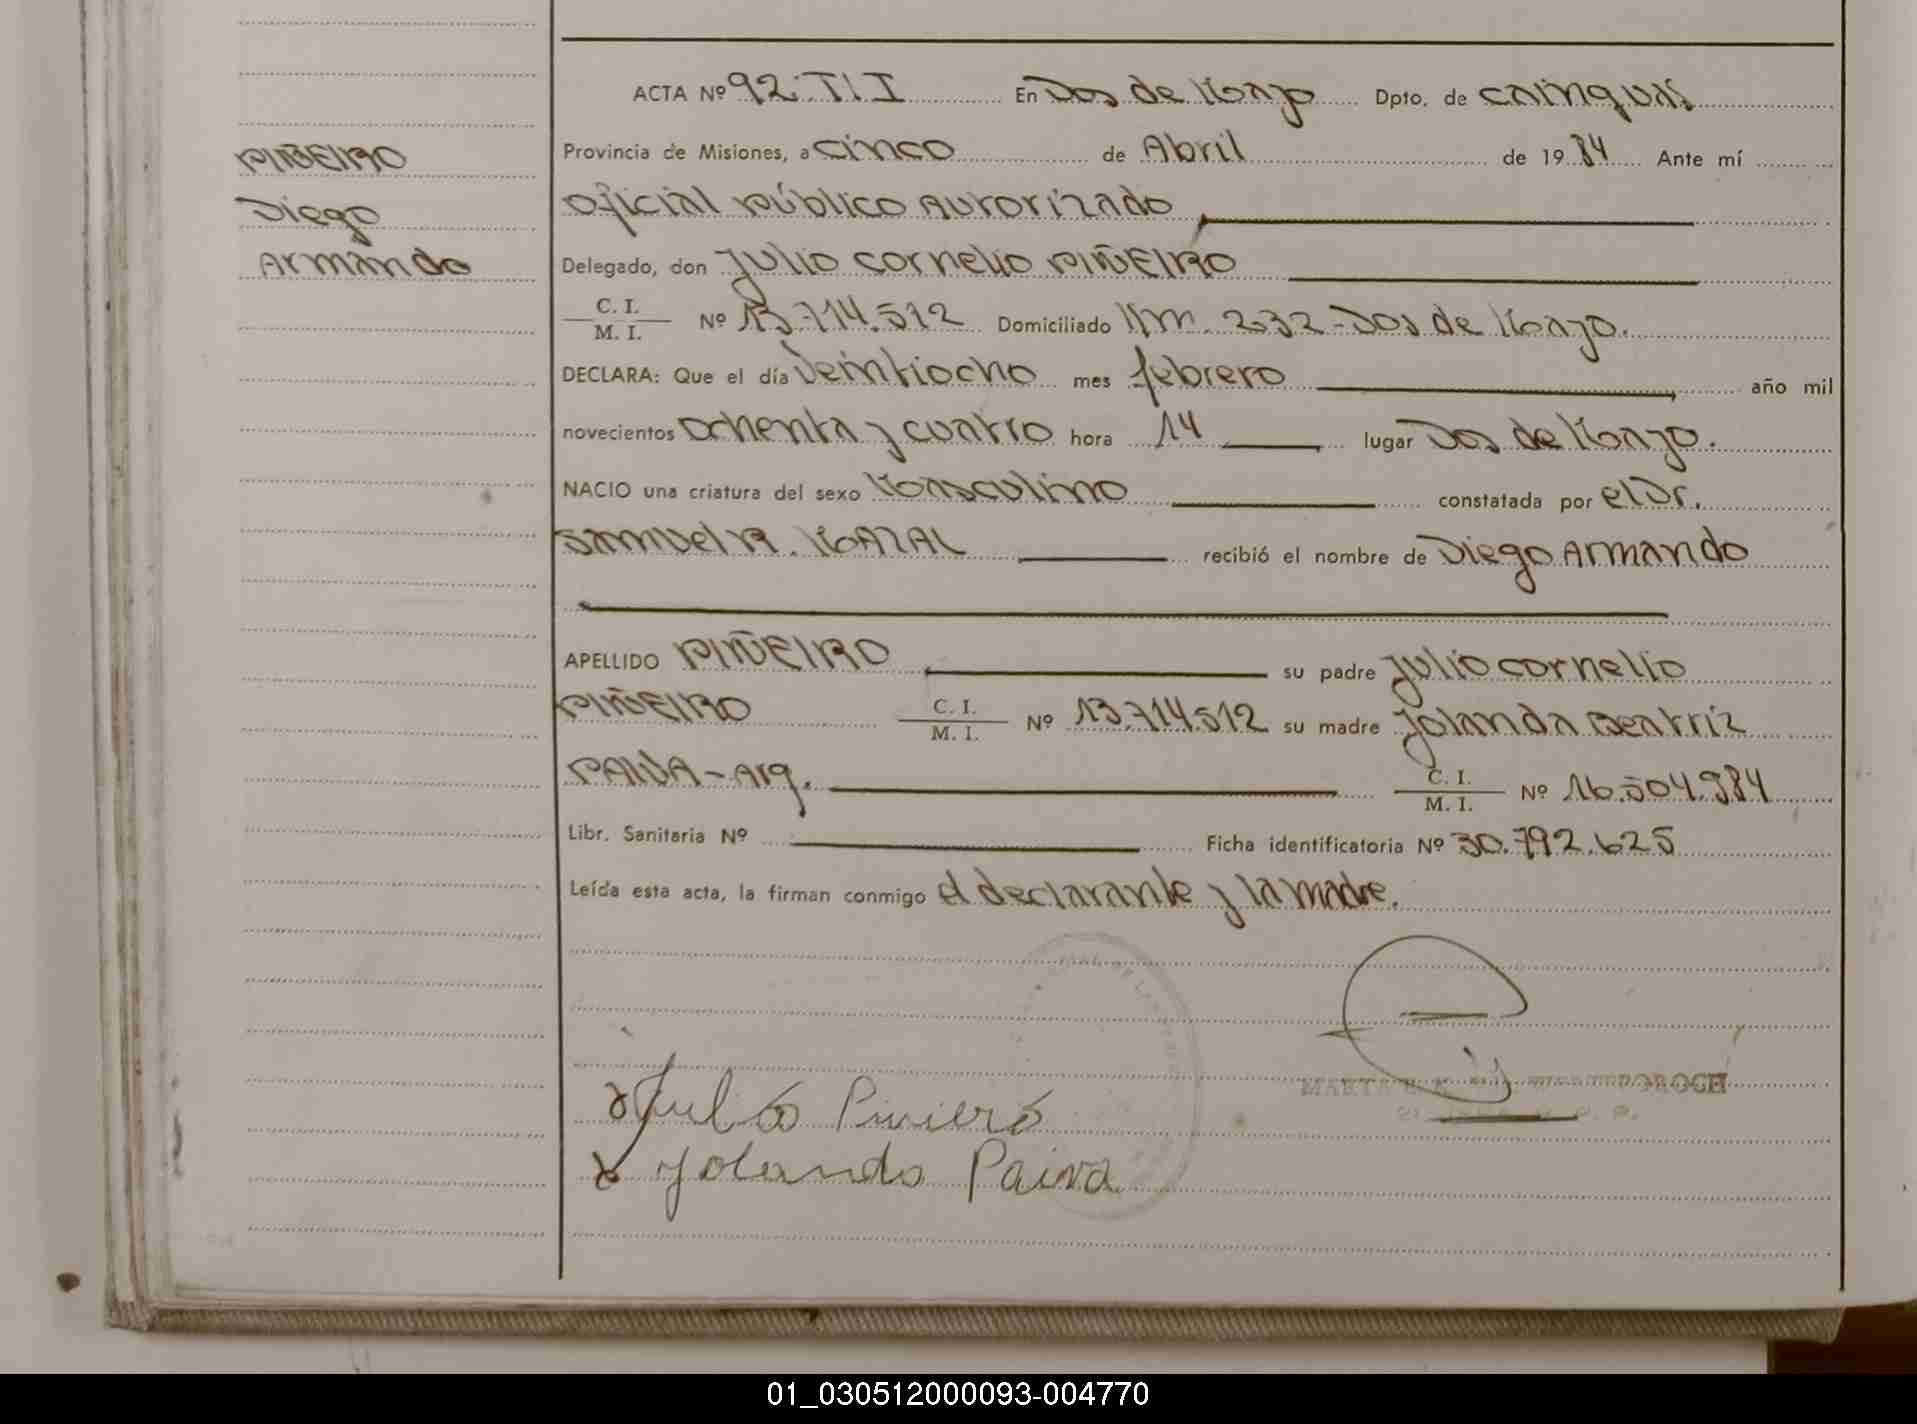 ACTA Nº 92. T I I En Dos de Mayo Dpto. de CAINGUAS
PIÑEIRO
Provincia de Misiones, a cinco de Abril de 19 84 Ante mí
Diego
oficial público AUTORIZADO
Armando
Delegado, don Julio Cornelio PIÑEIRO
C. I.
M. I. Nº 13.714.512 Domiciliado Km. 232 - Dos de Mayo.
DECLARA: Que el día Veintiocho mes febrero año mil
novecientos ochenta y cuatro hora 14 lugar Dos de Mayo.
NACIO una criatura del sexo Masculino constatada por el Dr.
SAMUEL R. MAZAL recibió el nombre de Diego Armando
APELLIDO PIÑEIRO su padre Julio Cornelio
PIÑEIRO C. I.
M. I. Nº 13.714.512 su madre Yolanda Beatriz
PAIVA - Arg. C. I.
M. I. Nº 16.504.984
Libr. Sanitaria Nº Ficha identificatoria Nº 30.792.625
Leída esta acta, la firman conmigo el declarante y la madre.
MARTA
Julio Piniero
Yolanda Paiva
01_030512000093-004770